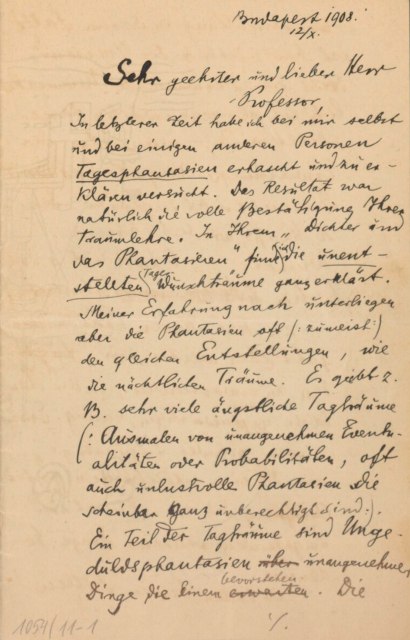 Budapest 1908.
12/X.
Sehr geehrter und lieber Herr
Professor,
In letzterer Zeit habe ich bei mir selbst
und bei einigen anderen Personen
Tagesphantasien erhascht und zu er-
klären versucht. Das Resultat war
natürlich die volle Bestätigung Ihrer
Traumlehre. In Ihrem „Dichter und
das Phantasieren" sind die unent-
stellten Tages-Wunschträume ganz erklärt.
Meiner Erfahrung nach unterliegen
aber die Phantasien oft (: zumeist :)
den gleichen Entstellungen, wie
die nächtlichen Träume. Es giebt z.
B. sehr viele ängstliche Tagträume
(: Ausmalen von unangenehmen Eventu-
alitäten oder Probabilitäten, oft
auch unlustvolle Phantasien die
scheinbar ganz unberechtigt sind :).
Ein Teil der Tagträume sind Unge-
duldsphantasien über unangenehme
Dinge die Einem erwarten bevorstehen. Die
·/.
1054/11-1